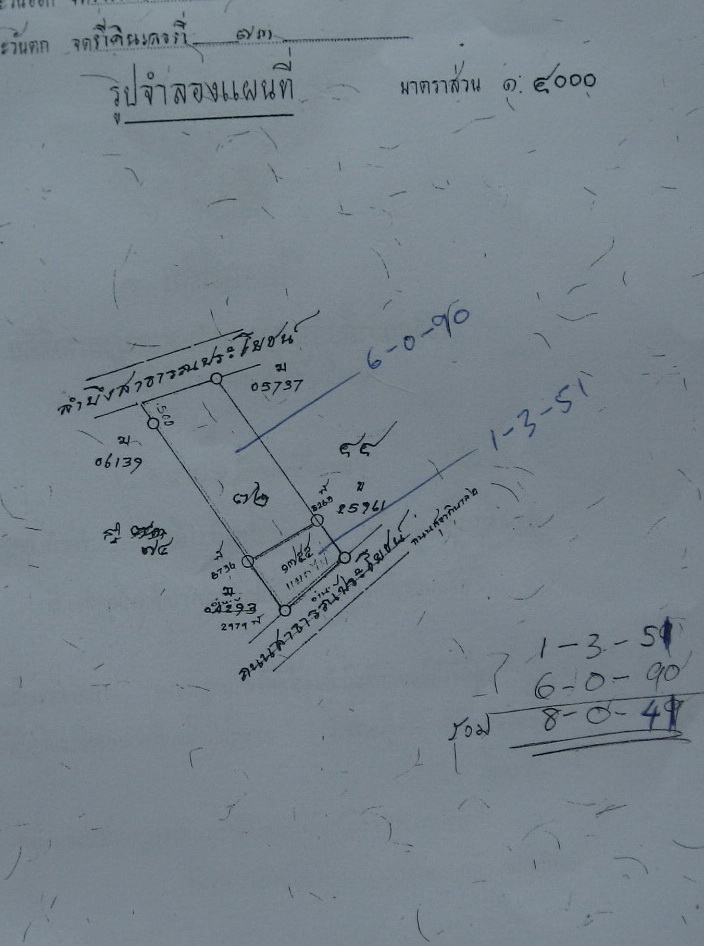 จดที่ดินเลขที่ ๗๓
รูปจำลองแผนที่
มาตราส่วน ๑:๔๐๐๐
6-0-90
ลำบึงสาธารณประโยชน์
ม
05737
1-3-51
500
ม
06139
๔๕
๗๒
ส
8263
ม
25961
๗๔
ส
8736
๑๗๕๕
แบ่งไป
ม
04293
2979 ส
ถนนสาธารณประโยชน์
ถนนสุขาภิบาล ๒
1-3-51
6-0-90
รวม 8-0-41